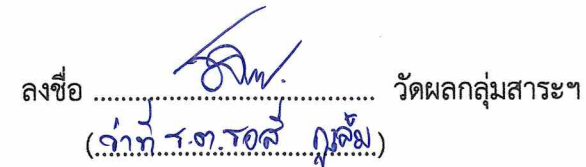 ลงชื่อ ........................................ วัดผลกลุ่มสาระฯ
(ว่าที่ ร.ต.รอสี